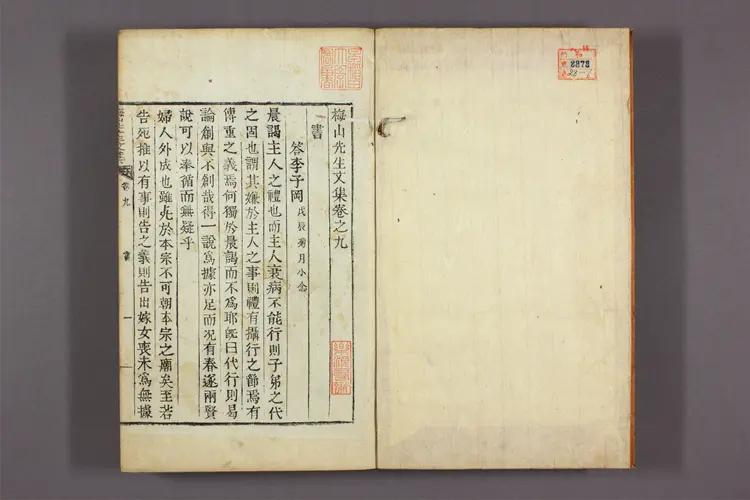 梅山先生文集卷之九
書
答李子岡 戊辰 月小念
晨謁主人之禮也而主人衰病不能行則子弟之代
之固也謂其嫌於主人之事則禮有攝行之節焉有
傳重之義焉何獨於晨謁而不爲耶旣曰代行則易
論創與不創哉得一說爲據亦足而况有春遂兩賢
說可以奉循而無疑乎
婦人外成也雖死於本宗不可朝本宗之廟矣至若
告死推以有事則告之義則告出嫁女喪未爲無據
卷九
書
一
2878
22-1